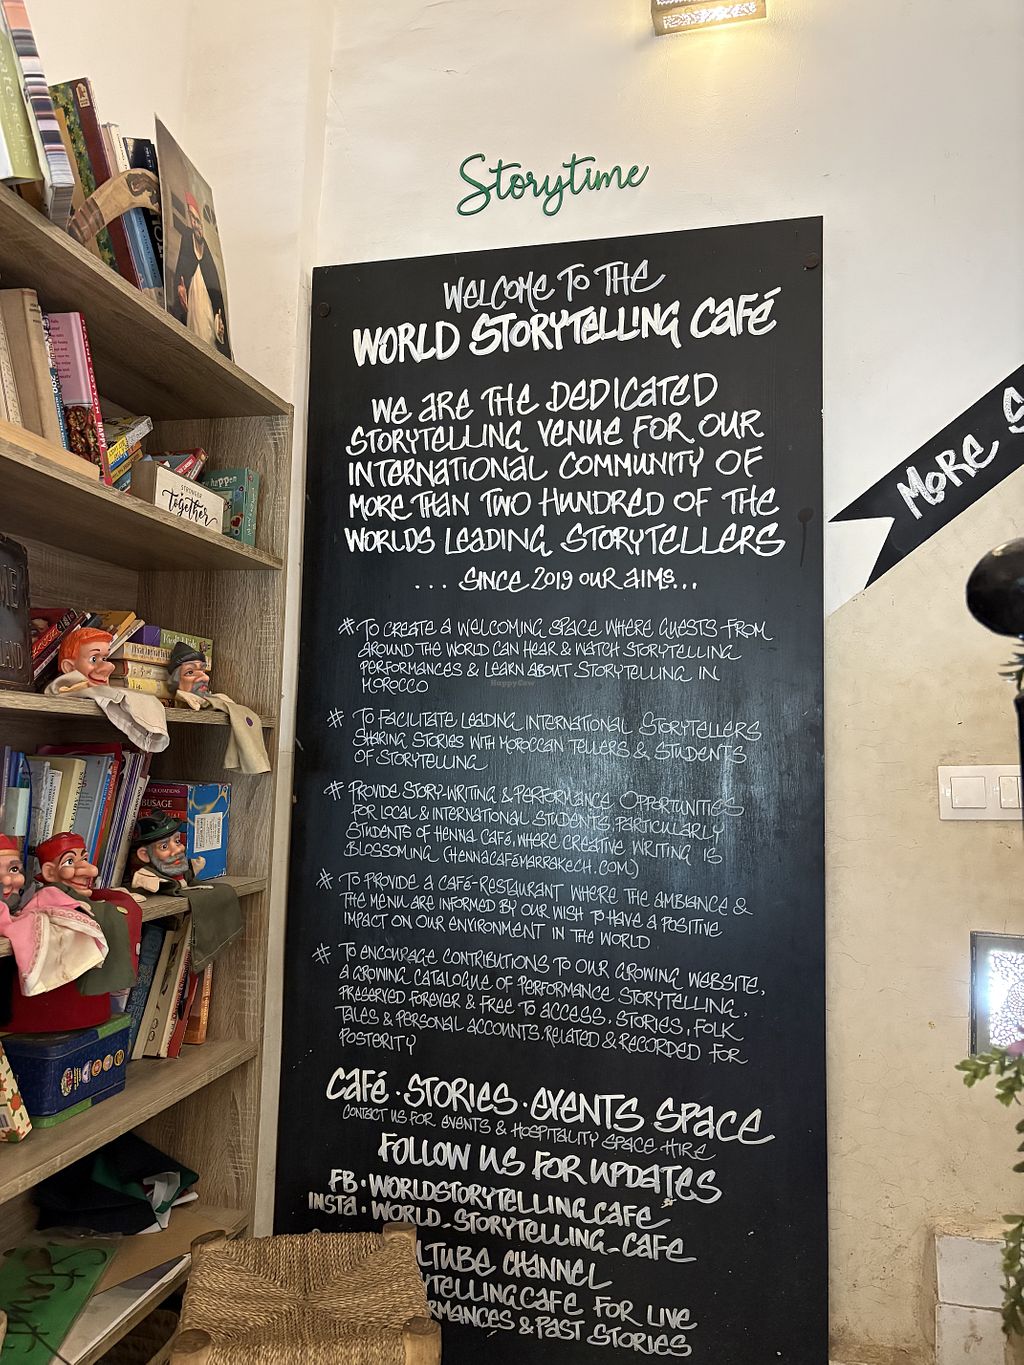 Storytime
WELCOME TO THE
WORLD STORYTELLING CAFÉ
WE ARE THE DEDICATED
STORYTELLING VENUE FOR OUR
INTERNATIONAL COMMUNITY OF
MORE THAN TWO HUNDRED OF THE
WORLDS LEADING STORYTELLERS
... SINCE 2019 OUR AIMS...
# TO CREATE A WELCOMING SPACE WHERE GUESTS FROM
AROUND THE WORLD CAN HEAR & WATCH STORYTELLING
PERFORMANCES & LEARN ABOUT STORYTELLING IN
MOROCCO
# TO FACILITATE LEADING INTERNATIONAL STORYTELLERS
SHARING STORIES WITH MOROCCAN TELLERS & STUDENTS
OF STORYTELLING
# PROVIDE STORY-WRITING & PERFORMANCE OPPORTUNITIES
FOR LOCAL & INTERNATIONAL STUDENTS, PARTICULARLY
STUDENTS OF HENNA CAFÉ, WHERE CREATIVE WRITING IS
BLOSSOMING (HENNACAFÉMARRAKECH.COM)
# TO PROVIDE A CAFÉ-RESTAURANT WHERE THE AMBIANCE &
THE MENU ARE INFORMED BY OUR WISH TO HAVE A POSITIVE
IMPACT ON OUR ENVIRONMENT IN THE WORLD
# TO ENCOURAGE CONTRIBUTIONS TO OUR GROWING WEBSITE,
A GROWING CATALOGUE OF PERFORMANCE STORYTELLING,
PRESERVED FOREVER & FREE TO ACCESS, STORIES, FOLK
TALES & PERSONAL ACCOUNTS, RELATED & RECORDED FOR
POSTERITY
CAFÉ · STORIES · EVENTS SPACE
CONTACT US FOR EVENTS & HOSPITALITY SPACE HIRE
FOLLOW US FOR UPDATES
FB · WORLDSTORYTELLINGCAFE
INSTA · WORLD_STORYTELLING_CAFE
CHANNEL
TELLINGCAFE FOR LIVE
& PAST STORIES
MORE
together
HappyCow